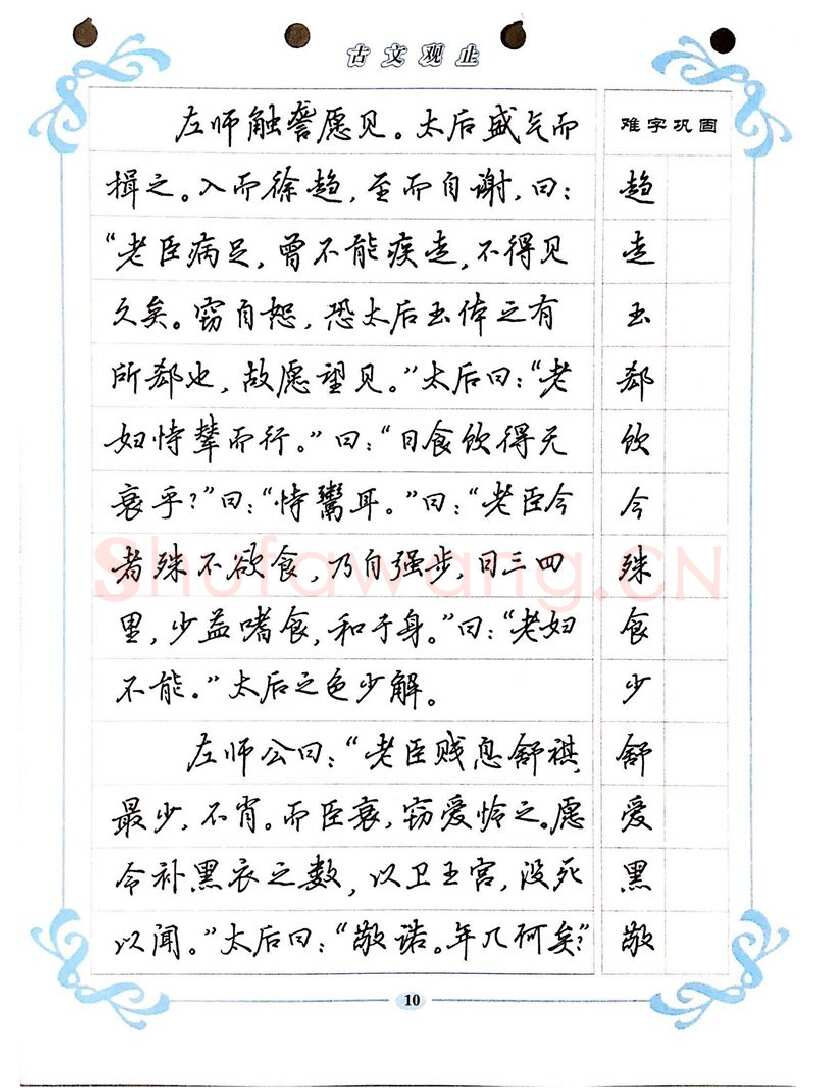 古文观止
左师触詟愿见。太后盛气而
揖之。入而徐趋，至而自谢，曰：
“老臣病足，曾不能疾走，不得见
久矣。窃自恕，恐太后玉体之有
所郄也，故愿望见。”太后曰：“老
妇恃辇而行。”曰：“日食饮得无
衰乎？”曰：“恃鬻耳。”曰：“老臣今
者殊不欲食，乃自强步，日三四
里，少益嗜食，和于身。”曰：“老妇
不能。”太后之色少解。
左师公曰：“老臣贱息舒祺，
最少，不肖。而臣衰，窃爱怜之。愿
令补黑衣之数，以卫王宫，没死
以闻。”太后曰：“敬诺。年几何矣？”
难字巩固
趋
走
玉
郄
饮
今
殊
食
少
舒
爱
黑
敬
Shufawang.CN
10